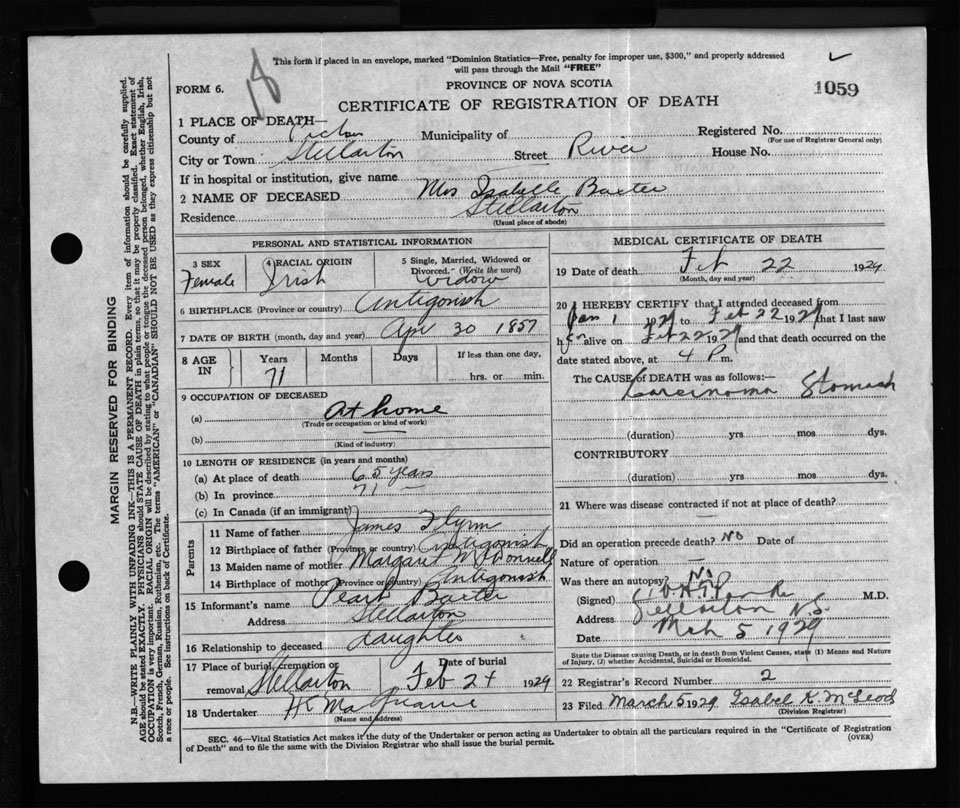 This form if placed in an envelope, marked "Dominion Statistics—Free, penalty for improper use, $300," and properly addressed
will pass through the Mail "FREE"
18
FORM 6.
PROVINCE OF NOVA SCOTIA
1059
CERTIFICATE OF REGISTRATION OF DEATH
1 PLACE OF DEATH—
County of Pictou Municipality of Registered No.
(For use of Registrar General only)
City or Town Stellarton Street River House No.
If in hospital or institution, give name
2 NAME OF DECEASED Mrs Isabelle Baxter
Residence Stellarton
(Usual place of abode)
PERSONAL AND STATISTICAL INFORMATION
3 SEX 4 RACIAL ORIGIN 5 Single, Married, Widowed or
Divorced. (Write the word)
Female Irish Widow
6 BIRTHPLACE (Province or country) Antigonish
7 DATE OF BIRTH (month, day and year) Apr 30 1857
8 AGE IN Years Months Days If less than one day,
71 hrs. or min.
9 OCCUPATION OF DECEASED
(a) At home
(Trade or occupation or kind of work)
(b) —
(Kind of industry)
10 LENGTH OF RESIDENCE (in years and months)
(a) At place of death 65 years
(b) In province 71 —
(c) In Canada (if an immigrant)
Parents
11 Name of father James Flynn
12 Birthplace of father (Province or country) Antigonish
13 Maiden name of mother Margaret McDonnell
14 Birthplace of mother (Province or country) Antigonish
15 Informant's name Pearl Baxter
Address Stellarton
16 Relationship to deceased daughter
17 Place of burial, cremation or Date of burial
removal Stellarton Feb 24 1929
18 Undertaker
(Name and address)
MEDICAL CERTIFICATE OF DEATH
19 Date of death Feb 22 1929
(Month, day and year)
20 I HEREBY CERTIFY that I attended deceased from
Jan 1 1929 to Feb 22 1929 that I last saw
her alive on Feb 22 1929 and that death occurred on the
date stated above, at 4 P m.
The CAUSE of DEATH was as follows:—
Carcinoma Stomach
(duration) yrs mos dys.
CONTRIBUTORY
(duration) yrs mos dys.
21 Where was disease contracted if not at place of death?
Did an operation precede death? No Date of
Nature of operation
Was there an autopsy? No
(Signed) M.D.
Address Stellarton N.S.
Date Mch 5 1929
State the Disease causing Death, or in death from Violent Causes, state (1) Means and Nature
of Injury, (2) whether Accidental, Suicidal or Homicidal.
22 Registrar's Record Number 2
23 Filed March 5 1929 Isabel K. McLeod
(Division Registrar)
SEC. 46—Vital Statistics Act makes it the duty of the Undertaker or person acting as Undertaker to obtain all the particulars required in the "Certificate of Registration
of Death" and to file the same with the Division Registrar who shall issue the burial permit. (OVER)
MARGIN RESERVED FOR BINDING
N.B.—WRITE PLAINLY WITH UNFADING INK—THIS IS A PERMANENT RECORD. Every item of information should be carefully supplied.
AGE should be stated EXACTLY. PHYSICIANS should STATE CAUSE OF DEATH in plain terms, so that it may be properly classified. Exact statement of
OCCUPATION is very important. RACIAL ORIGIN will be described by stating to what people or tongue the deceased person belonged, whether English, Irish,
Scotch, French, German, Russian, Ruthenian, etc. The terms "AMERICAN" or "CANADIAN" SHOULD NOT BE USED as they express citizenship but not
a race or people. See instructions on back of Certificate.